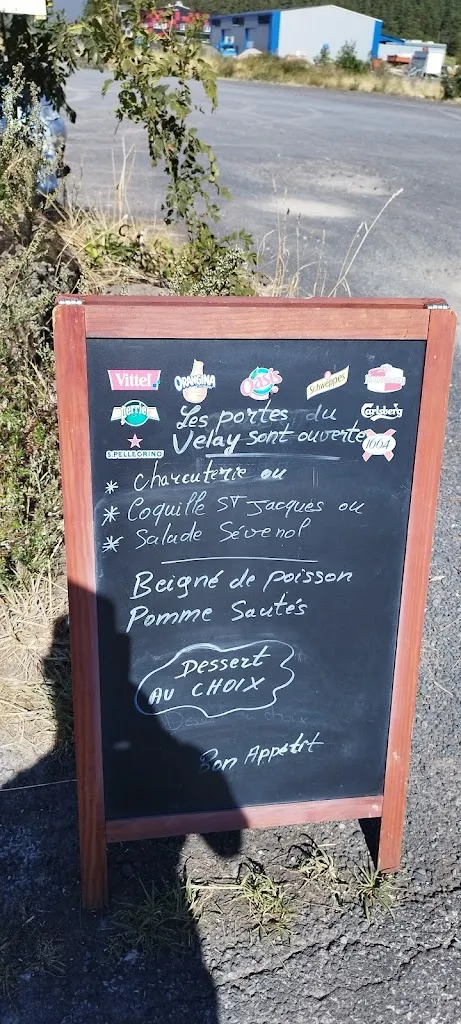 Vittel
ORANGINA
Oasis
Schweppes
Perrier
Carlsberg
S.PELLEGRINO
1664
Les portes du
Velay sont ouverte
* Charcuterie ou
* Coquille ST Jacques ou
* Salade Sévenol
Beigné de poisson
Pomme Sautés
Dessert
AU CHOIX
Bon Appétit